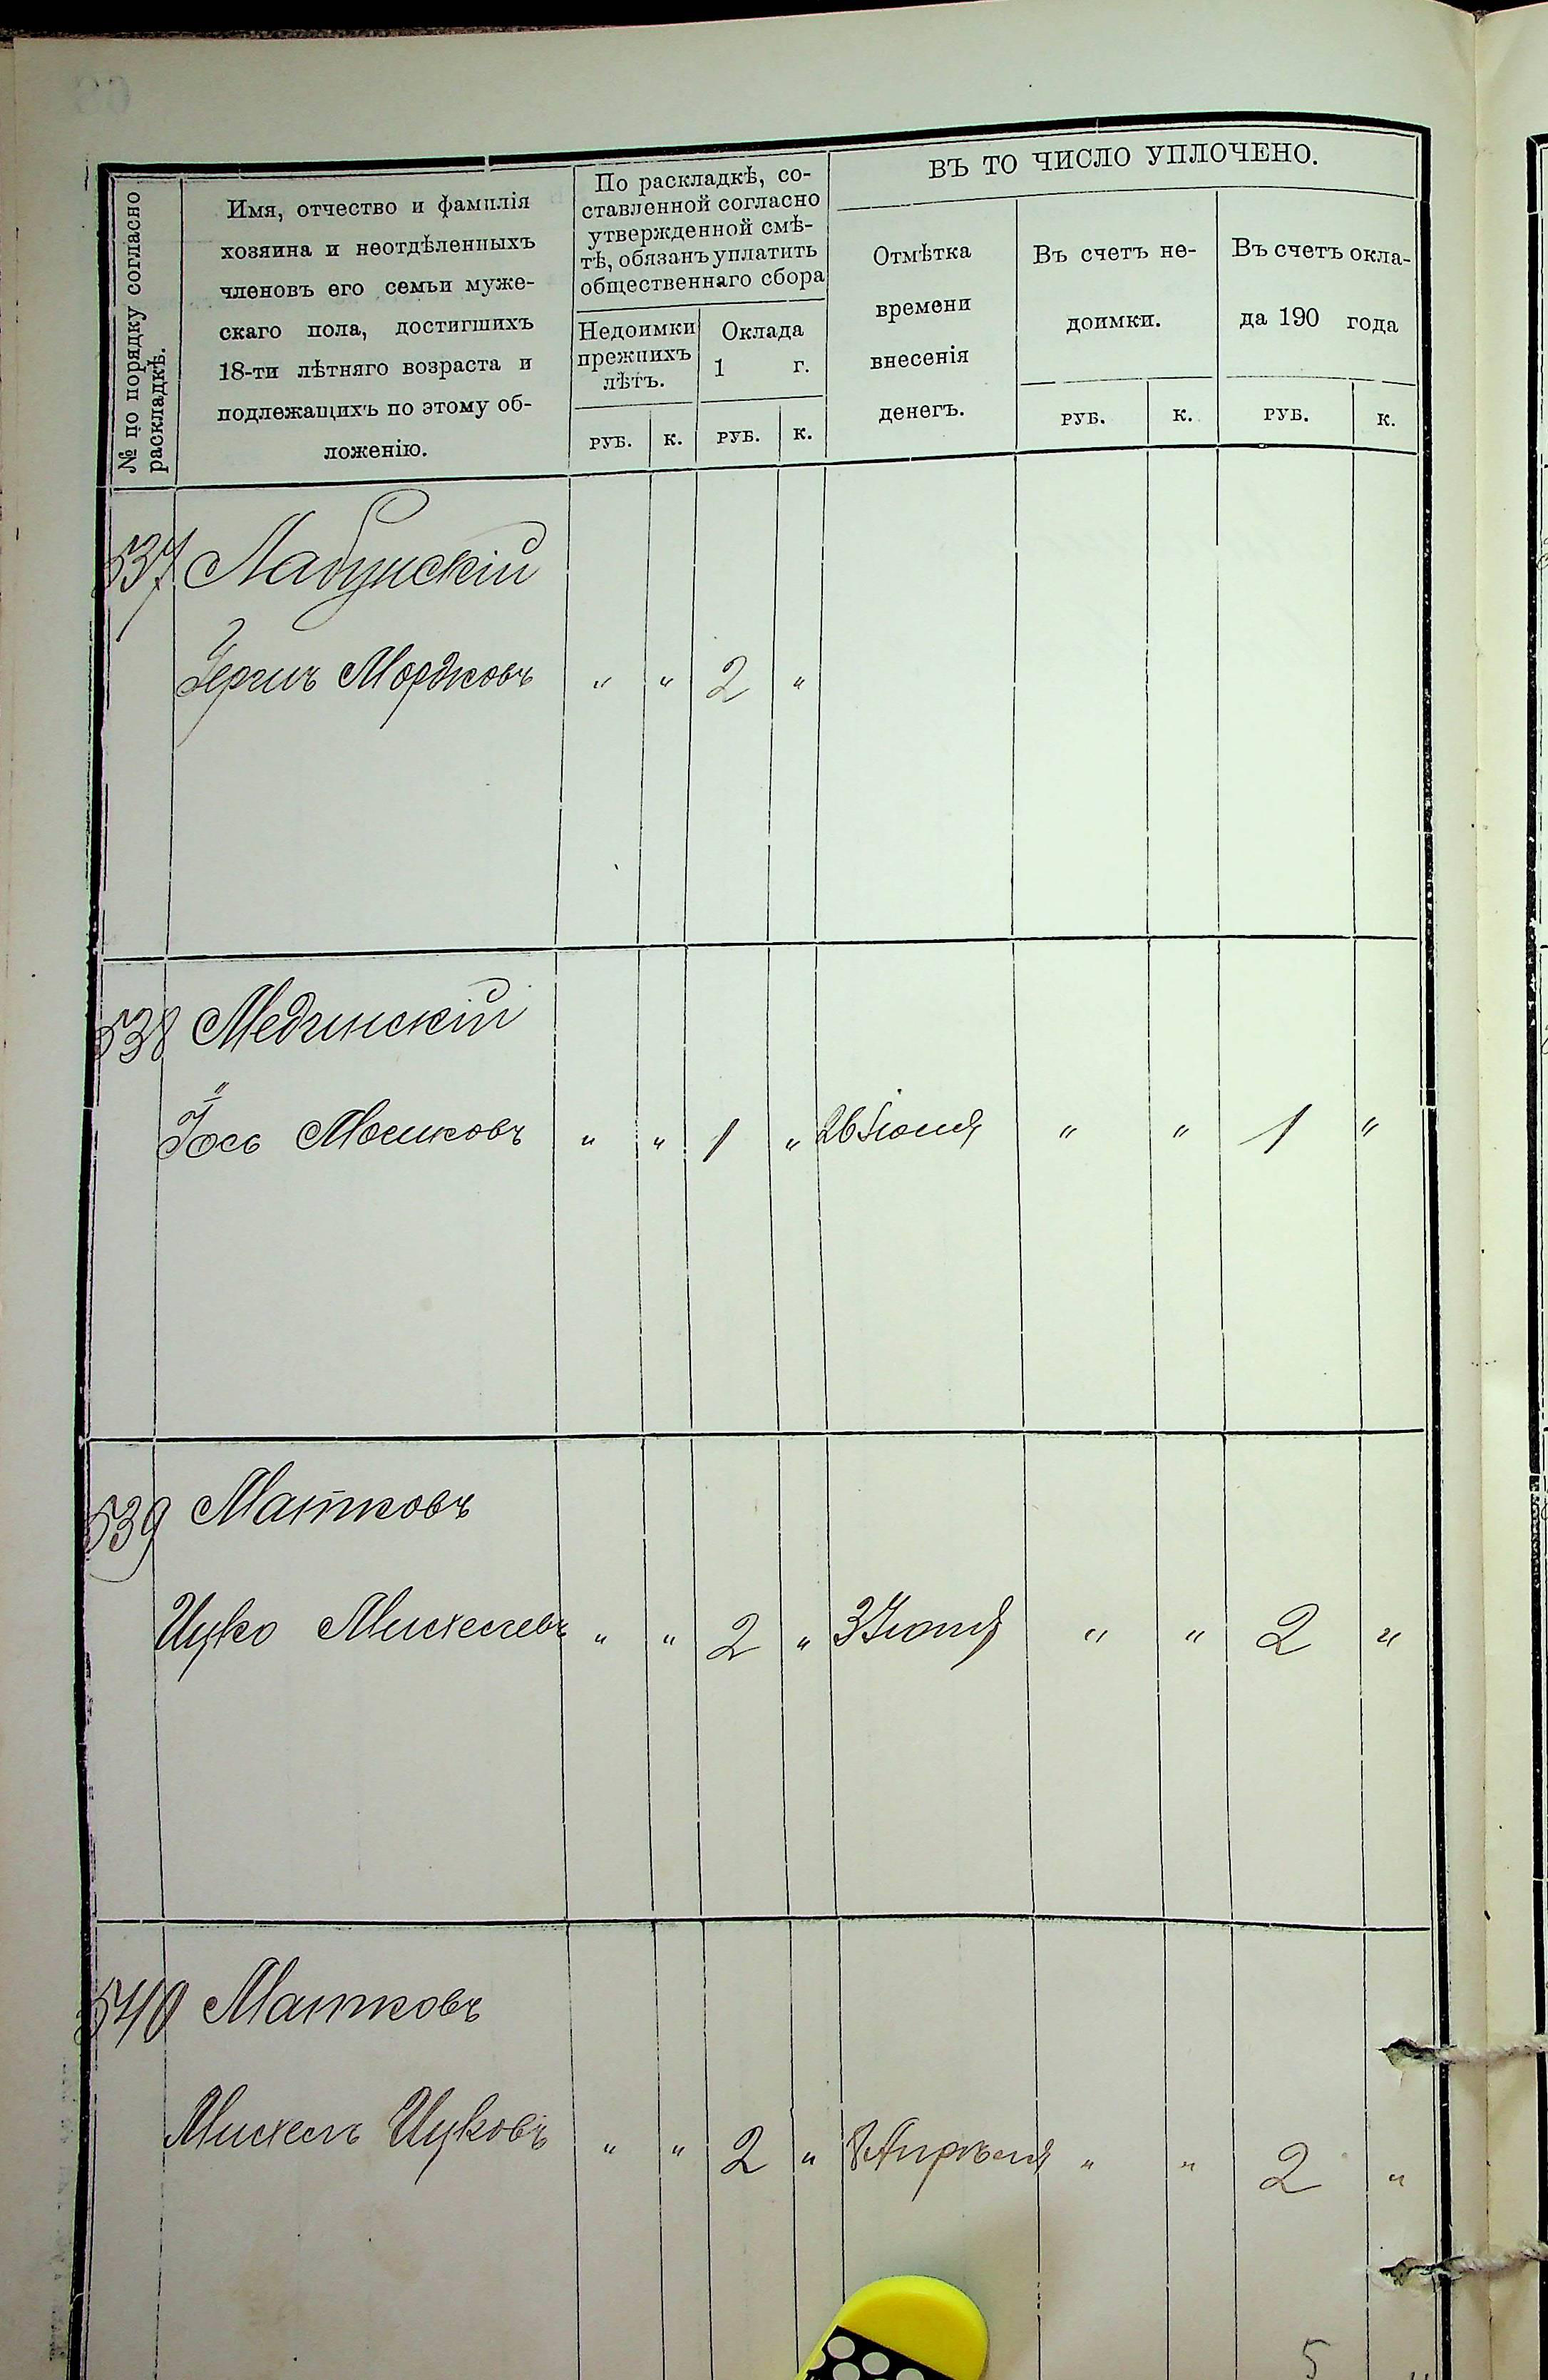 № по порядку согласно
раскладкѣ.
Имя, отчество и фамилія
хозяина и неотдѣленныхъ
членовъ его семьи муже-
скаго пола, достигшихъ
18-ти лѣтняго возраста и
подлежащихъ по этому об-
ложенію.
По раскладкѣ, со-
ставленной согласно
утвержденной смѣ-
тѣ, обязанъ уплатить
общественнаго сбора
Недоимки
прежнихъ
лѣтъ.
Оклада
1 г.
РУБ. К. РУБ. К.
ВЪ ТО ЧИСЛО УПЛОЧЕНО.
Отмѣтка
времени
внесенія
денегъ.
Въ счетъ не-
доимки.
Въ счетъ окла-
да 190 года
РУБ. К. РУБ. К.
537 Лабунскій
Мордковъ " " 2 "
538 Мединскій
Іось Мошковъ " " 1 " 26 Іюня " " 1 "
539 Матковъ
Ицко Михелевъ " " 2 " 3 " " 2 "
540 Матковъ
Михель Ицковъ " " 2 " 8 Апрѣля " " 2 "
5 "